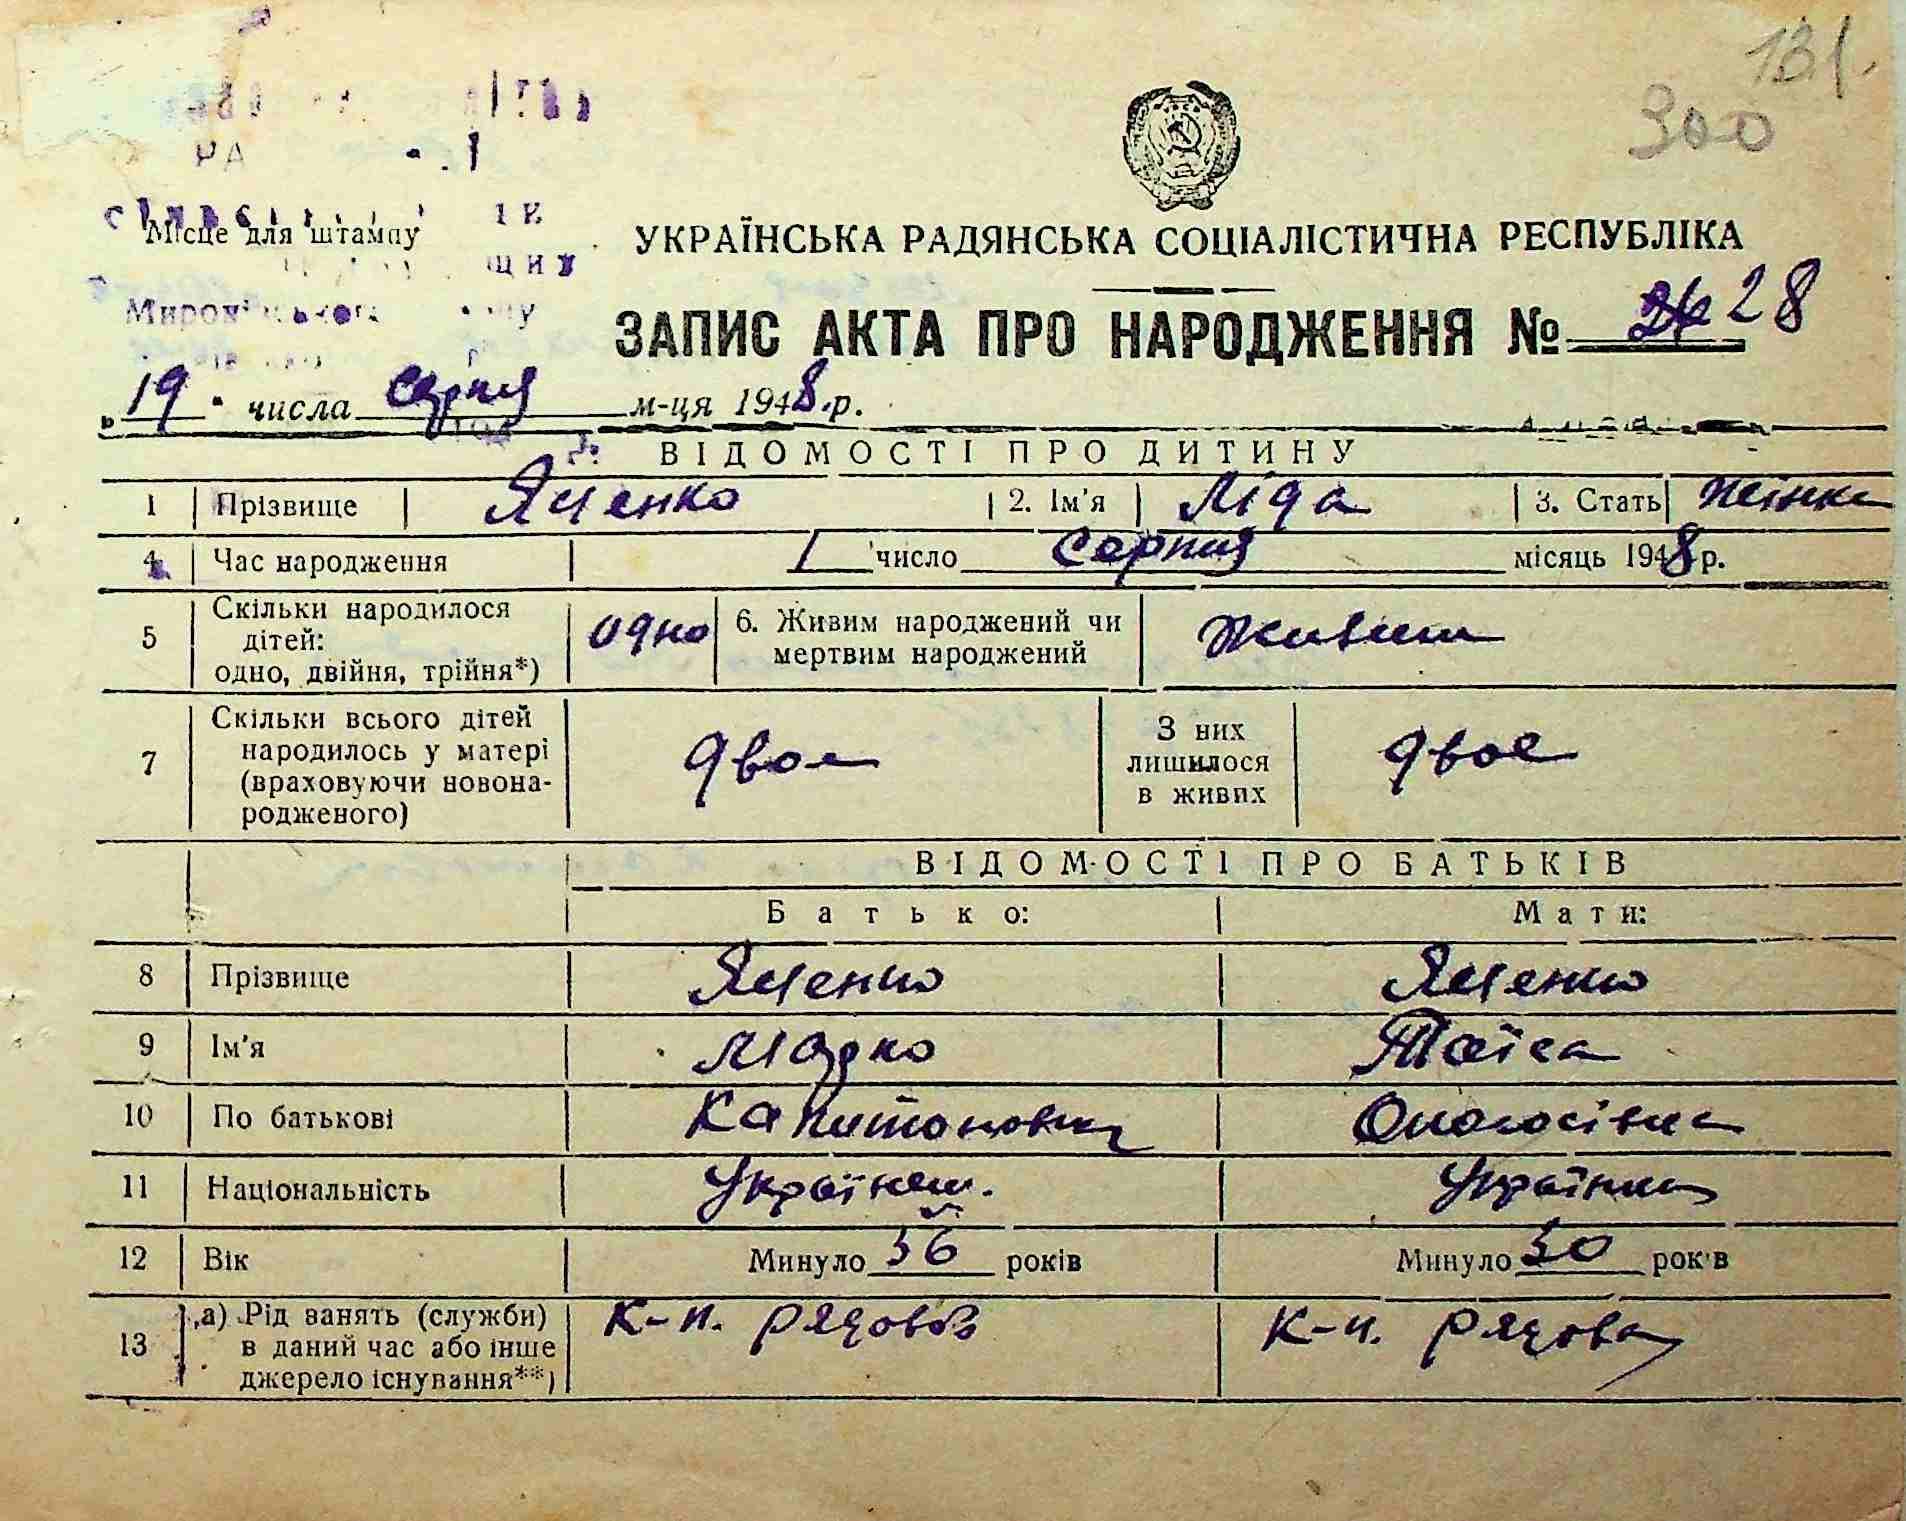 131.
300
Місце для штампу
УКРАЇНСЬКА РАДЯНСЬКА СОЦІАЛІСТИЧНА РЕСПУБЛІКА
ЗАПИС АКТА ПРО НАРОДЖЕННЯ № 28
„19" числа серпня м-ця 1948 р.
ВІДОМОСТІ ПРО ДИТИНУ
1 Прізвище Яценко 2. Ім'я Ліда 3. Стать жінка
4 Час народження 1 число серпня місяць 1948 р.
5 Скільки народилося дітей: одно, двійня, трійня*) одно 6. Живим народжений чи мертвим народжений живим
7 Скільки всього дітей народилось у матері (враховуючи новонародженого) двоє З них лишилося в живих двоє
ВІДОМОСТІ ПРО БАТЬКІВ
Батько: Мати:
8 Прізвище Яценко Яценко
9 Ім'я Марко Таїса
10 По батькові Капитонович
11 Національність Українец. Українка
12 Вік Минуло 36 років Минуло 30 років
13 а) Рід занять (служби) в даний час або інше джерело існування**) к-п. рядовой к-п. рядова